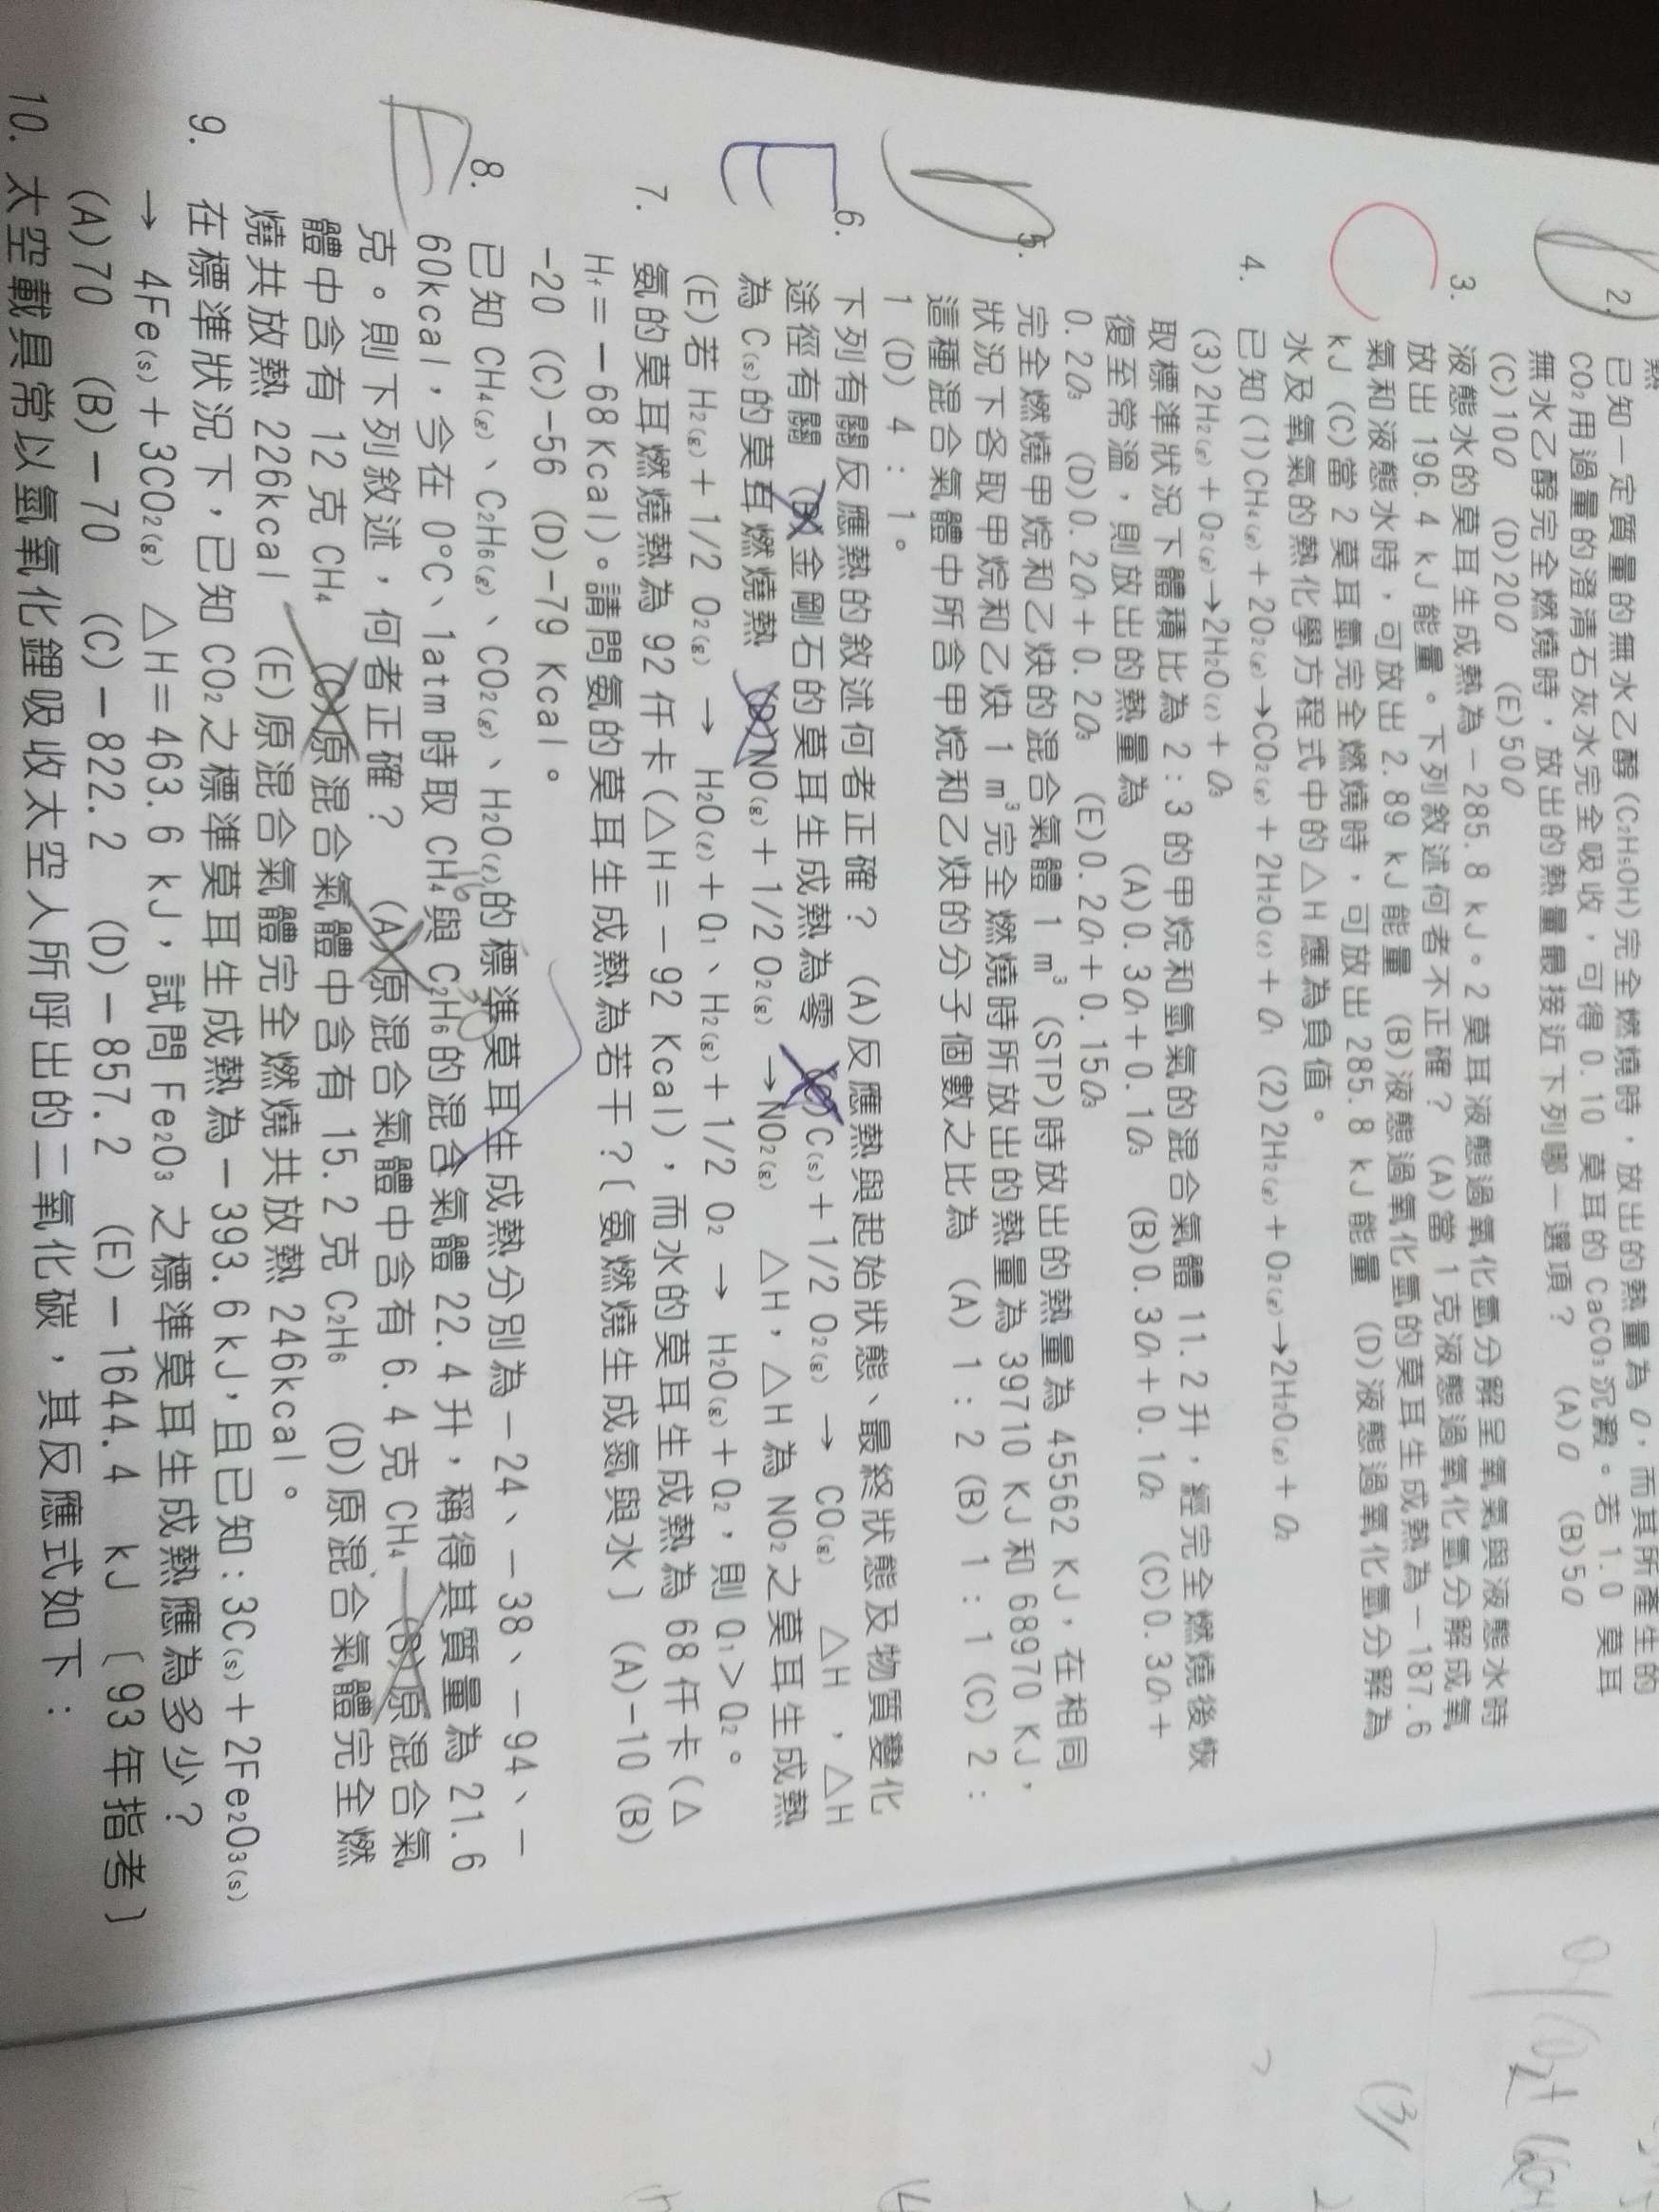 熱
2. 已知一定質量的無水乙醇(C₂H₅OH)完全燃燒時，放出的熱量為 Q，而其所產生的
CO₂用過量的澄清石灰水完全吸收，可得 0.10 莫耳的 CaCO₃沉澱。若 1.0 莫耳
無水乙醇完全燃燒時，放出的熱量最接近下列哪一選項？ (A)Q (B)5Q
(C)10Q (D)20Q (E)50Q
3. 液態水的莫耳生成熱為－285.8 kJ。2 莫耳液態過氧化氫分解呈氧氣與液態水時
放出 196.4 kJ能量。下列敘述何者不正確？ (A)當 1 克液態過氧化氫分解成氧
氣和液態水時，可放出 2.89 kJ能量 (B)液態過氧化氫的莫耳生成熱為－187.6
kJ (C)當 2 莫耳氫完全燃燒時，可放出 285.8 kJ能量 (D)液態過氧化氫分解為
水及氧氣的熱化學方程式中的△H應為負值。
4. 已知(1)CH₄(g)＋2O₂(g)→CO₂(g)＋2H₂O(ℓ)＋Q₁ (2)2H₂(g)＋O₂(g)→2H₂O(g)＋Q₂
(3)2H₂(g)＋O₂(g)→2H₂O(ℓ)＋Q₃
取標準狀況下體積比為 2:3 的甲烷和氫氣的混合氣體 11.2 升，經完全燃燒後恢
復至常溫，則放出的熱量為 (A)0.3Q₁＋0.1Q₃ (B)0.3Q₁＋0.1Q₂ (C)0.3Q₁＋
0.2Q₃ (D)0.2Q₁＋0.2Q₃ (E)0.2Q₁＋0.15Q₃
5. 完全燃燒甲烷和乙炔的混合氣體 1 m³ (STP)時放出的熱量為 45562 KJ，在相同
狀況下各取甲烷和乙炔 1 m³完全燃燒時所放出的熱量為 39710 KJ和 68970 KJ，
這種混合氣體中所含甲烷和乙炔的分子個數之比為 (A) 1：2 (B) 1：1 (C) 2：
1 (D) 4：1。
6. 下列有關反應熱的敘述何者正確？ (A)反應熱與起始狀態、最終狀態及物質變化
途徑有關 (B)金剛石的莫耳生成熱為零 (C)C(s)＋1/2 O₂(g) → CO(g) △H ，△H
為 C(s)的莫耳燃燒熱 (D)NO(g)＋1/2 O₂(g) →NO₂(g) △H，△H 為 NO₂之莫耳生成熱
(E)若 H₂(g)＋1/2 O₂(g) → H₂O(ℓ)＋Q₁、H₂(g)＋1/2 O₂ → H₂O(g)＋Q₂，則 Q₁＞Q₂。
7. 氨的莫耳燃燒熱為 92 仟卡(△H＝－92 Kcal)，而水的莫耳生成熱為 68 仟卡(△
Hf＝－68 Kcal)。請問氨的莫耳生成熱為若干？〔氨燃燒生成氮與水〕 (A)-10 (B)
-20 (C)-56 (D)-79 Kcal。
8. 已知 CH₄(g)、C₂H₆(g)、CO₂(g)、H₂O(ℓ)的標準莫耳生成熱分別為－24、－38、－94、－
60kcal，今在 0℃、1atm時取 CH₄與 C₂H₆的混合氣體 22.4 升，稱得其質量為 21.6
克。則下列敘述，何者正確？ (A)原混合氣體中含有 6.4 克 CH₄ (B)原混合氣
體中含有 12 克 CH₄ (C)原混合氣體中含有 15.2 克 C₂H₆ (D)原混合氣體完全燃
燒共放熱 226kcal (E)原混合氣體完全燃燒共放熱 246kcal。
9. 在標準狀況下，已知 CO₂之標準莫耳生成熱為－393.6 kJ，且已知：3C(s)＋2Fe₂O₃(s)
→ 4Fe(s)＋3CO₂(g) △H＝463.6 kJ，試問 Fe₂O₃ 之標準莫耳生成熱應為多少？
(A)70 (B)－70 (C)－822.2 (D)－857.2 (E)－1644.4 kJ 〔93年指考〕
10. 太空載具常以氫氧化鋰吸收太空人所呼出的二氧化碳，其反應式如下：